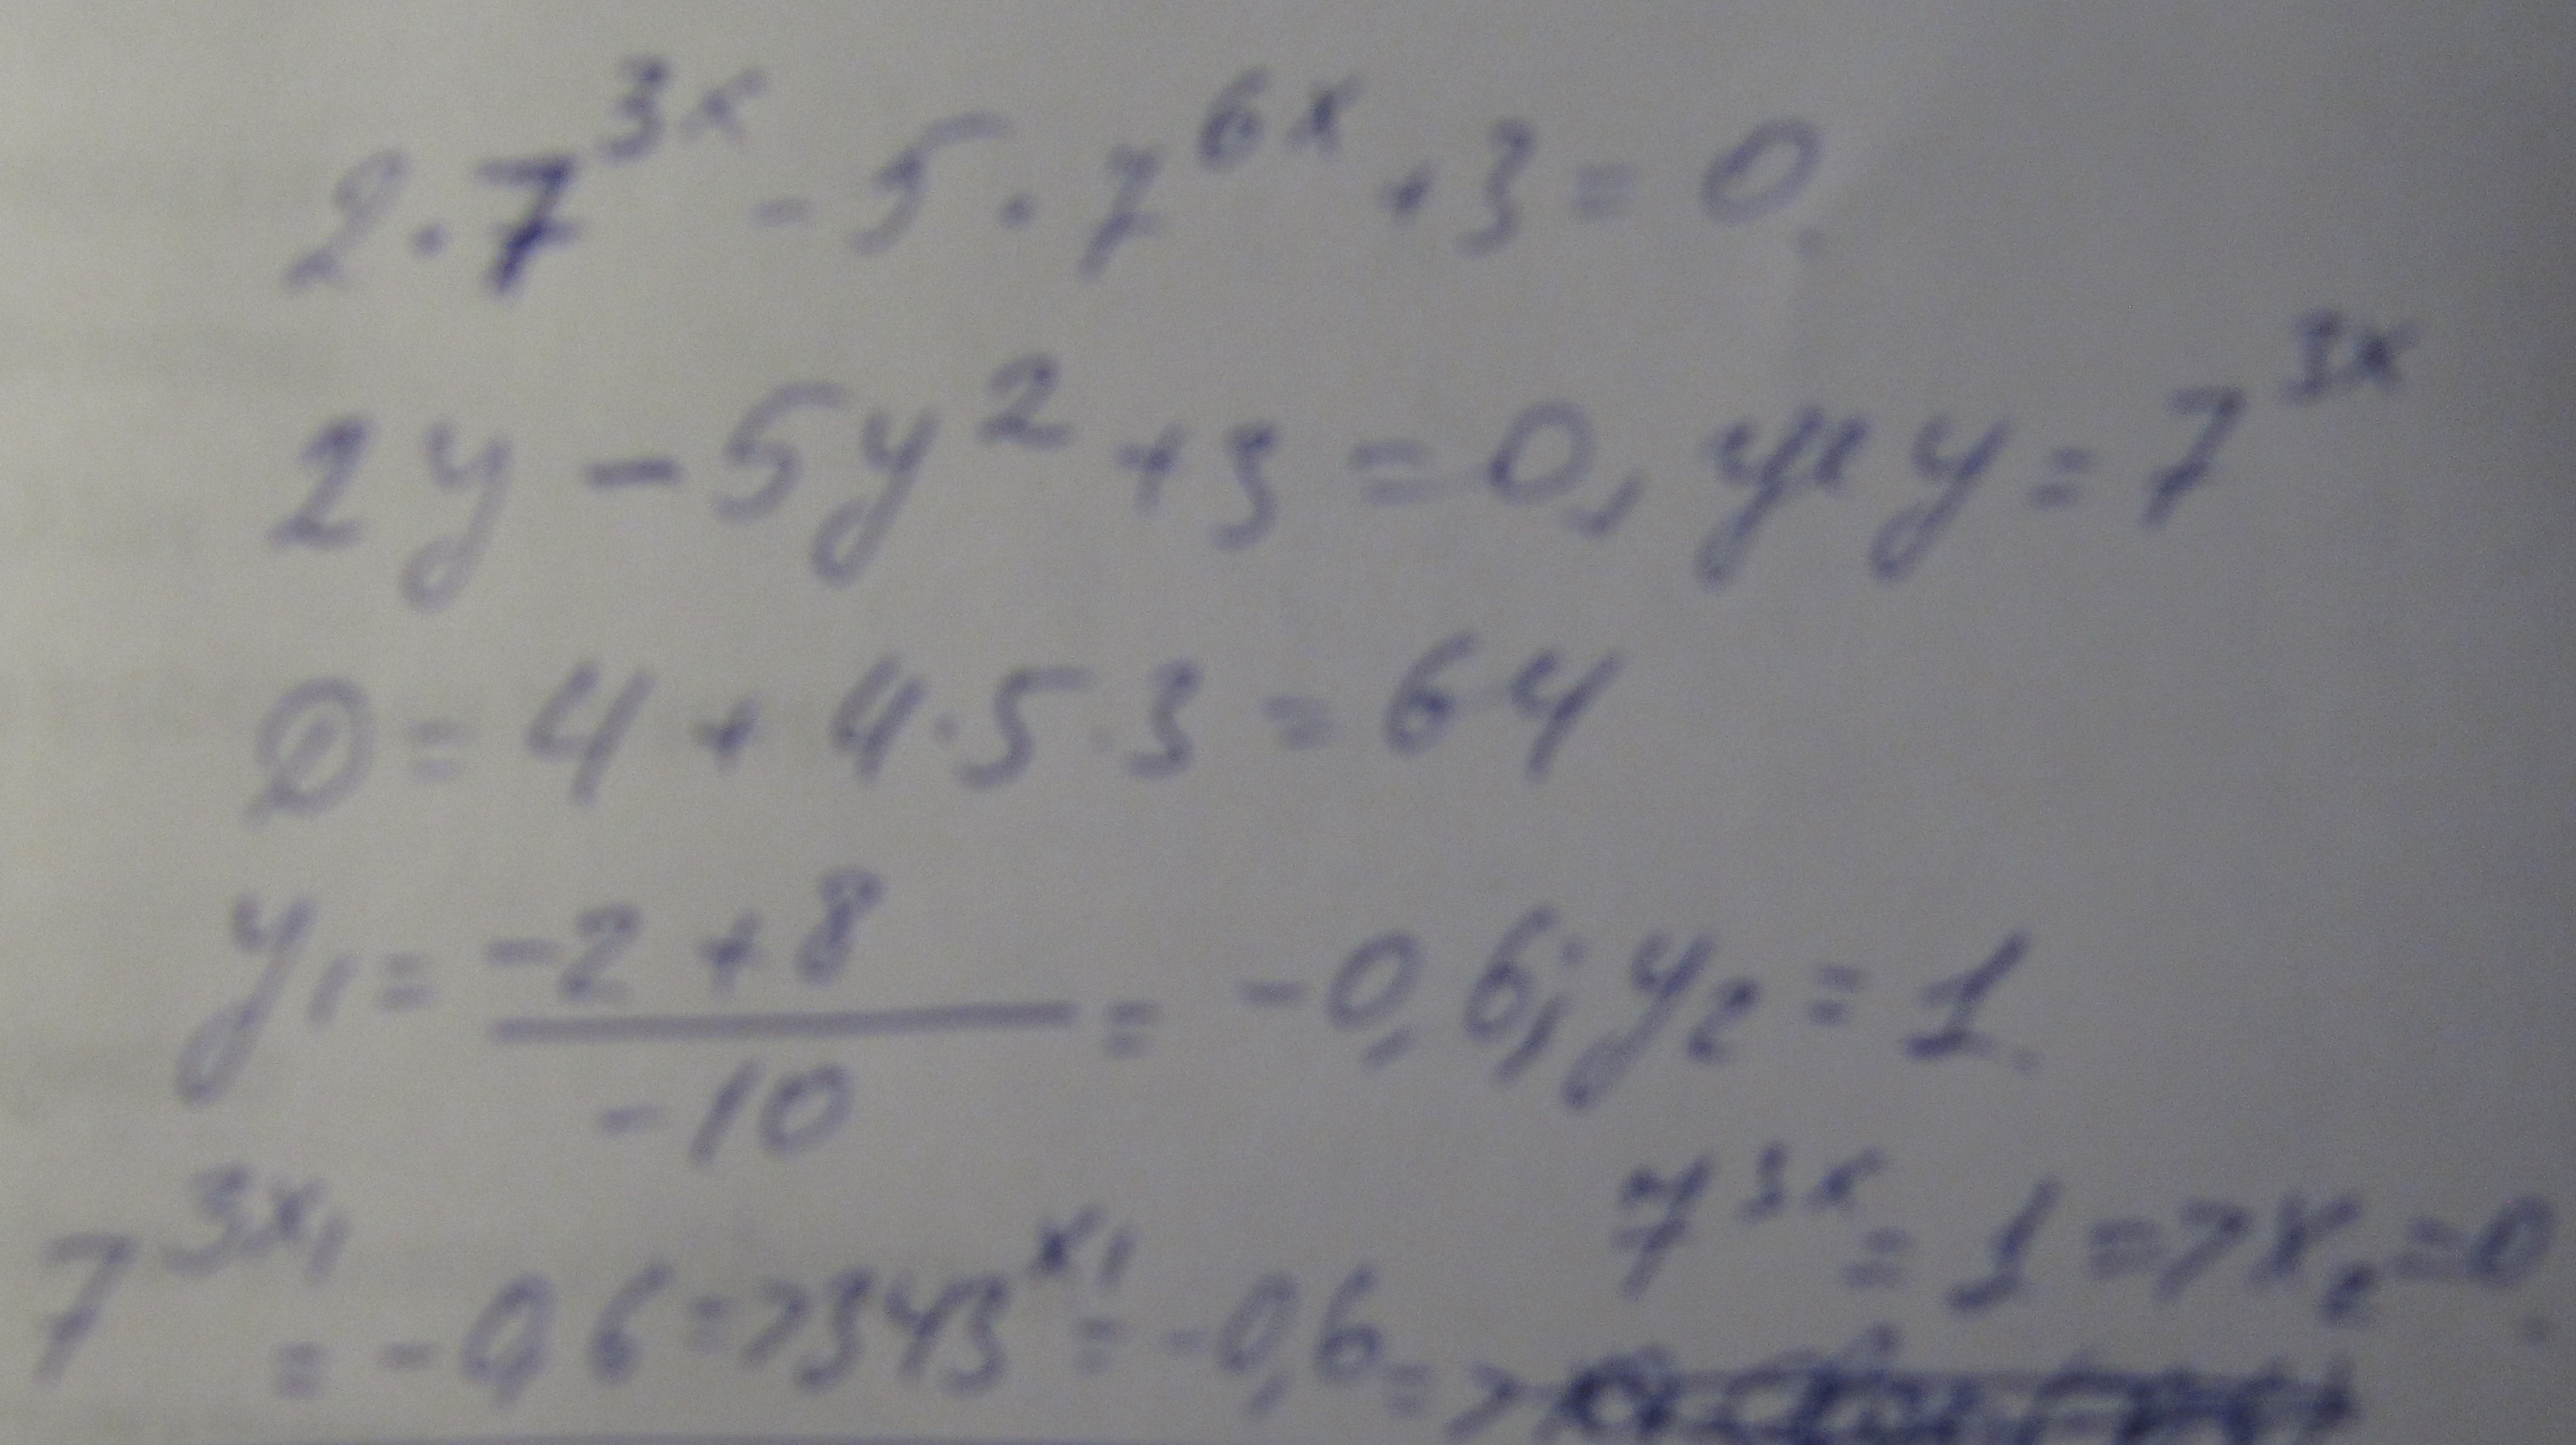 2·7^{3x} - 5·7^{6x} + 3 = 0
2y - 5y² + 3 = 0, y = 7^{3x}
D = 4 + 4·5·3 = 64
y₁ = \frac{-2+8}{-10} = -0,6; y₂ = 1
7^{3x₁} = -0,6 => 343^{x₁} = -0,6 =>
7^{3x} = 1 => x₂ = 0.